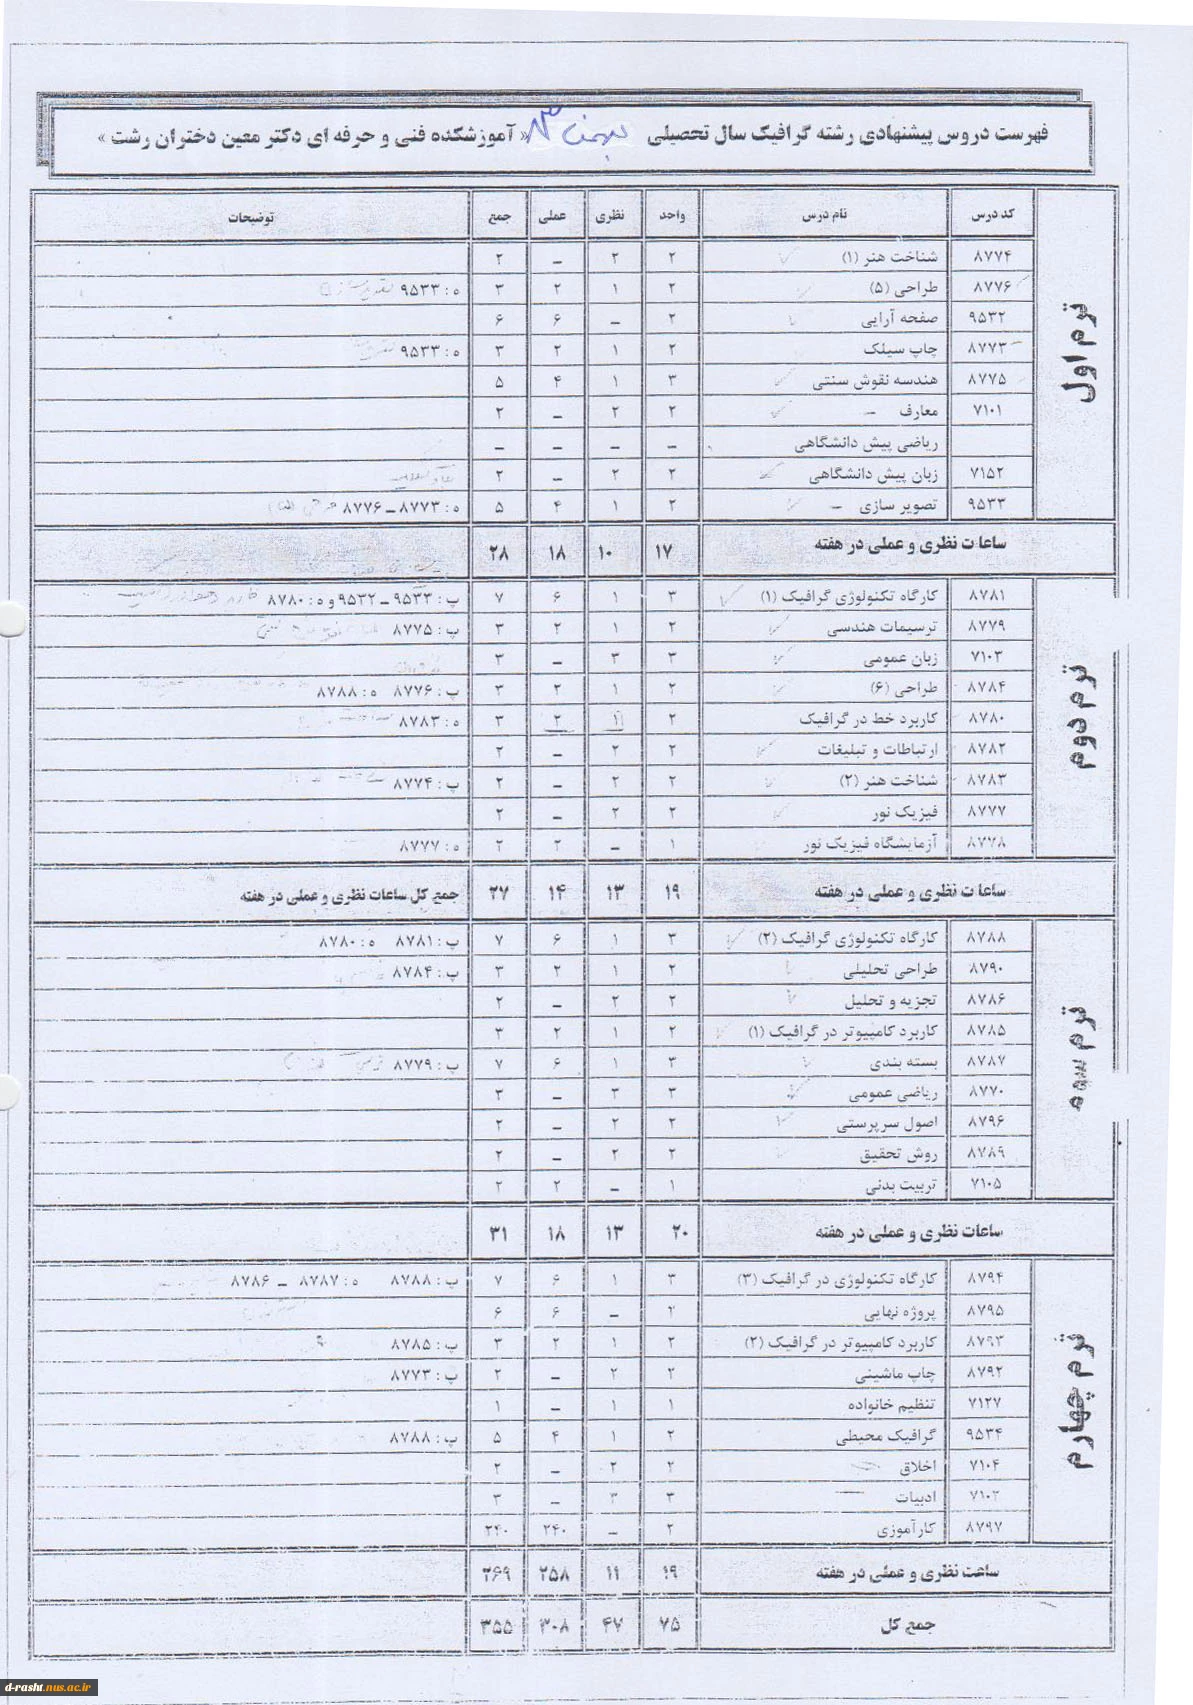 فهرست دروس پیشنهادی رشته گرافیک سال تحصیلی بهمن ۹۳ « آموزشکده فنی و حرفه ای دکتر معین دختران رشت »
کد درس نام درس واحد نظری عملی جمع توضیحات
ترم اول
۸۷۷۴ شناخت هنر (۱) ۲ ۲ – ۲
۸۷۷۶ طراحی (۵) ۲ ۱ ۲ ۳ ه : ۹۵۳۳
۹۵۳۲ صفحه آرایی ۲ – ۶ ۶
۸۷۷۳ چاپ سیلک ۲ ۱ ۲ ۳ ه : ۹۵۳۳
۸۷۷۵ هندسه نقوش سنتی ۳ ۱ ۴ ۵
۷۱۰۱ معارف ۲ ۲ – ۲
ریاضی پیش دانشگاهی – – – –
۷۱۵۲ زبان پیش دانشگاهی ۲ ۲ – ۲
۹۵۳۳ تصویر سازی ۲ ۱ ۴ ۵ ه : ۸۷۷۳ – ۸۷۷۶
ساعات نظری و عملی در هفته ۱۷ ۱۰ ۱۸ ۲۸
ترم دوم
۸۷۸۱ کارگاه تکنولوژی گرافیک (۱) ۳ ۱ ۶ ۷ پ : ۹۵۳۳ – ۹۵۳۲ و ه : ۸۷۸۰
۸۷۷۹ ترسیمات هندسی ۲ ۱ ۲ ۳ پ : ۸۷۷۵
۷۱۰۳ زبان عمومی ۳ ۳ – ۳
۸۷۸۴ طراحی (۶) ۲ ۱ ۲ ۳ پ : ۸۷۷۶ ه : ۸۷۸۸
۸۷۸۰ کاربرد خط در گرافیک ۲ ۱ ۲ ۳ ه : ۸۷۸۳
۸۷۸۲ ارتباطات و تبلیغات ۲ ۲ – ۲
۸۷۸۳ شناخت هنر (۲) ۲ ۲ – ۲ پ : ۸۷۷۴
۸۷۷۷ فیزیک نور ۲ ۲ – ۲
۸۷۷۸ آزمایشگاه فیزیک نور ۱ – ۲ ۲ ه : ۸۷۷۷
ساعات نظری و عملی در هفته ۱۹ ۱۳ ۱۴ ۲۷ جمع کل ساعات نظری و عملی در هفته
ترم سوم
۸۷۸۸ کارگاه تکنولوژی گرافیک (۲) ۳ ۱ ۶ ۷ پ : ۸۷۸۱ ه : ۸۷۸۰
۸۷۹۰ طراحی تحلیلی ۲ ۱ ۲ ۳ پ : ۸۷۸۴
۸۷۸۶ تجزیه و تحلیل ۲ ۲ – ۲
۸۷۸۵ کاربرد کامپیوتر در گرافیک (۱) ۲ ۱ ۲ ۳
۸۷۸۷ بسته بندی ۳ ۱ ۶ ۷ پ : ۸۷۷۹
۸۷۷۰ ریاضی عمومی ۳ ۳ – ۳
۸۷۹۶ اصول سرپرستی ۲ ۲ – ۲
۸۷۸۹ روش تحقیق ۲ ۲ – ۲
۷۱۰۵ تربیت بدنی ۱ – ۲ ۲
ساعات نظری و عملی در هفته ۲۰ ۱۳ ۱۸ ۳۱
ترم چهارم
۸۷۹۴ کارگاه تکنولوژی در گرافیک (۳) ۳ ۱ ۶ ۷ پ : ۸۷۸۸ ه : ۸۷۸۷ – ۸۷۸۶
۸۷۹۵ پروژه نهایی ۲ – ۶ ۶
۸۷۹۳ کاربرد کامپیوتر در گرافیک (۲) ۲ ۱ ۲ ۳ پ : ۸۷۸۵
۸۷۹۲ چاپ ماشینی ۲ ۲ – ۲ پ : ۸۷۷۳
۷۱۲۷ تنظیم خانواده ۱ ۱ – ۱
۹۵۳۴ گرافیک محیطی ۲ ۱ ۴ ۵ پ : ۸۷۸۸
۷۱۰۴ اخلاق ۲ ۲ – ۲
۷۱۰۲ ادبیات ۳ ۳ – ۳
۸۷۹۷ کارآموزی ۲ – ۲۴۰ ۲۴۰
ساعت نظری و عملی در هفته ۱۹ ۱۱ ۲۵۸ ۲۶۹
جمع کل ۷۵ ۴۷ ۳۰۸ ۳۵۵
d-rasht.nus.ac.ir